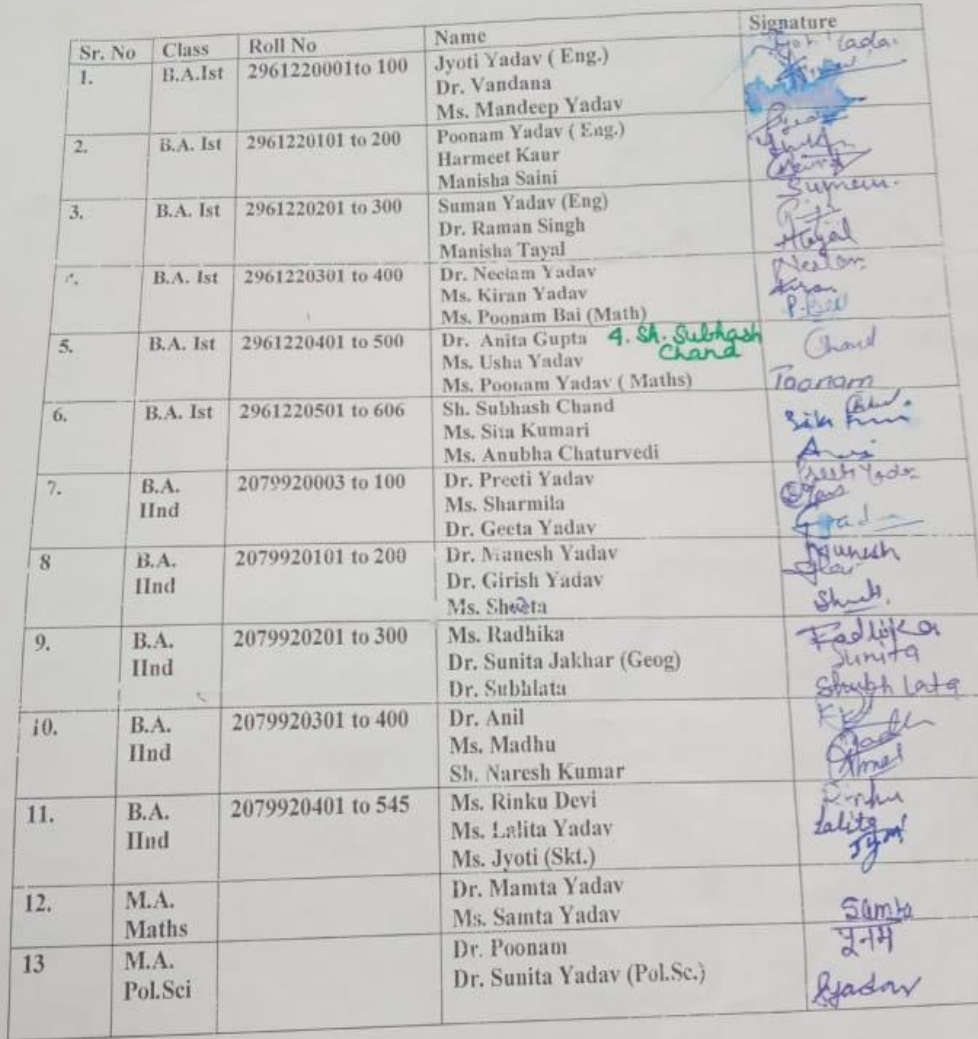 Sr. No Class Roll No Name Signature
1. B.A.Ist 2961220001to 100 Jyoti Yadav ( Eng.)
Dr. Vandana
Ms. Mandeep Yadav
2. B.A. Ist 2961220101 to 200 Poonam Yadav ( Eng.)
Harmeet Kaur
Manisha Saini
3. B.A. Ist 2961220201 to 300 Suman Yadav (Eng) Suman
Dr. Raman Singh
Manisha Tayal Tayal
B.A. Ist 2961220301 to 400 Dr. Neelam Yadav Neelam
Ms. Kiran Yadav Kiran
Ms. Poonam Bai (Math)
5. B.A. Ist 2961220401 to 500 Dr. Anita Gupta 4. Sh. Subhash Chand Chand
Ms. Usha Yadav
Ms. Poonam Yadav ( Maths) Poonam
6. B.A. Ist 2961220501 to 606 Sh. Subhash Chand
Ms. Sita Kumari
Ms. Anubha Chaturvedi
7. B.A. IInd 2079920003 to 100 Dr. Preeti Yadav Preeti Yadav
Ms. Sharmila
Dr. Geeta Yadav
8 B.A. IInd 2079920101 to 200 Dr. Manesh Yadav Munesh
Dr. Girish Yadav
Ms. Shweta
9. B.A. IInd 2079920201 to 300 Ms. Radhika Radhika
Dr. Sunita Jakhar (Geog) Sunita
Dr. Subhlata Shubh Lata
10. B.A. IInd 2079920301 to 400 Dr. Anil
Ms. Madhu Madhu
Sh. Naresh Kumar
11. B.A. IInd 2079920401 to 545 Ms. Rinku Devi Rinku
Ms. Lalita Yadav Lalita
Ms. Jyoti (Skt.)
12. M.A. Maths Dr. Mamta Yadav
Ms. Samta Yadav Samta
13 M.A. Pol.Sci Dr. Poonam पूनम
Dr. Sunita Yadav (Pol.Sc.) Syadav